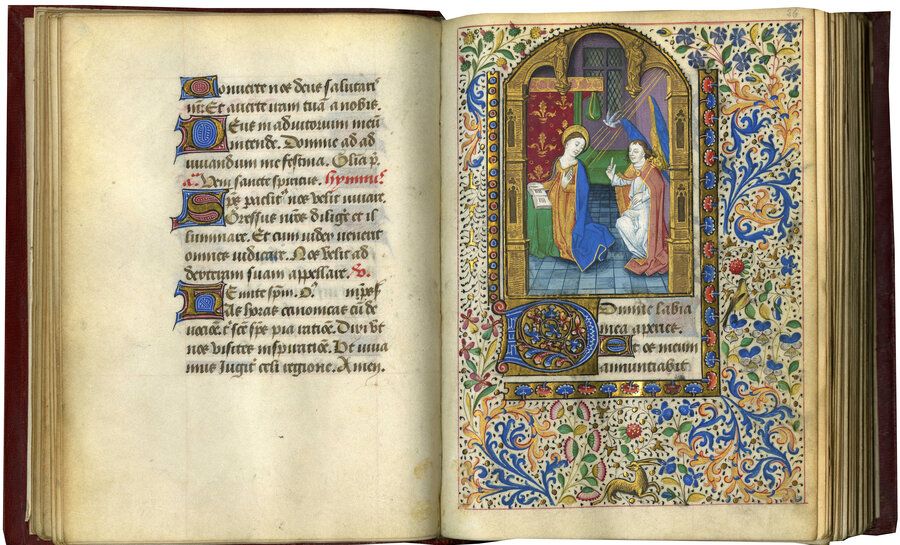 Converte nos deus salutar
nr. Et averte iram tuã a nobis.
Deus in adiutorium meũ
intende. Domine ad ad
iuuandum me festina. Glia p.
a. Veni sancte spiritus. hympnus
nos velit iuuare.
Gressus nr̃os dirige et il
luminare. Et cum iudex venerit
omnes iudicare. Nos velit ad
dexteram suam appellare. V.
Emitte spm. Or.
has horas canonicas cũ de
Dixi ut
nos visites inspiratiõe. Et viva
mus iugit celi regione. Amen.
26
Domine labia
mea aperies.
Et os meum
annunciabit